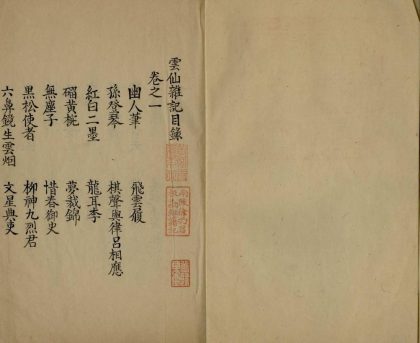 雲仙雜記目錄
卷之一
幽人筆 飛雲履
孫登琴 棋聲與律呂相應
紅白二墨 龍耳李
黃椀 夢裁錦
無塵子 惜春御史
黑松使者 柳神九烈君
六鼻鏡生雲烟 文星典吏
南陵徐乃昌
校勘經籍記